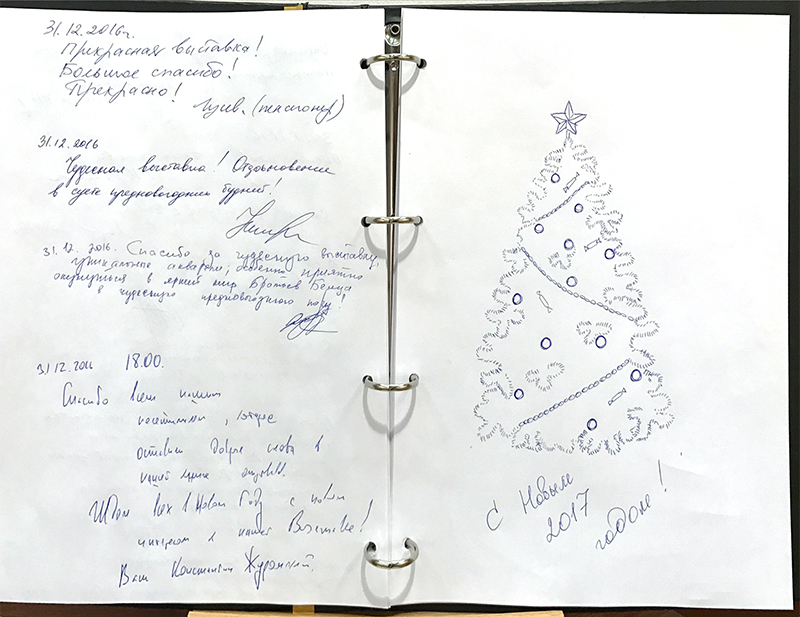 31.12.2016г.
Прекрасная выставка!
Большое спасибо!
Прекрасно!
(пенсионер)
31.12.2016
Чудесная выставка! Отдохновение
в суете предновогодних будней!
31.12.2016. Спасибо за чудесную выставку,
уникальные акварели, особенно приятно
окунуться в яркий мир Братьев Бенуа
в чудесную предновогоднюю пору!
31.12.2016 18.00.
Спасибо всем нашим
посетителям, которые
оставили добрые слова в
нашей книге отзывов.
Ждём всех в Новом Году с новым
интересом к нашей Выставке!
Ваш Константин Журомский.
С Новым
2017
годом!